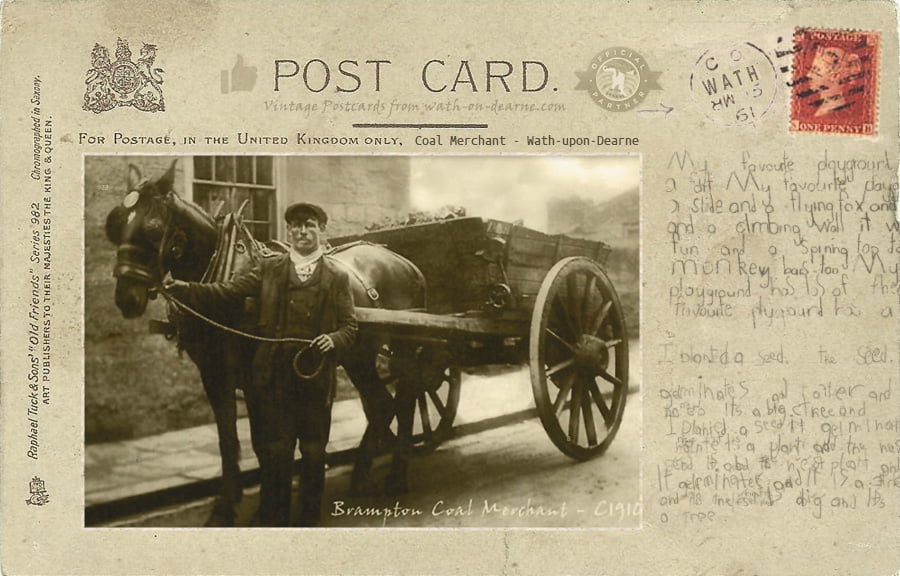 POST CARD.
Vintage Postcards from wath-on-dearne.com
OFFICIAL PARTNER
WATH
61
POSTAGE
ONE PENNY
FOR POSTAGE, IN THE UNITED KINGDOM ONLY,
Coal Merchant - Wath-upon-Dearne
Raphael Tuck & Sons' "Old Friends" Series 982
Chromographed in Saxony.
ART PUBLISHERS TO THEIR MAJESTIES THE KING & QUEEN.
Brampton Coal Merchant - C1910
My favourite playground
My favourite
a slide and a flying fox and
and a climbing wall it
fun and a spining top
monkey bars too. My
playground has lots of the
favourite playground has a
I plantd a seed. the seed.
germinates and
Its a big tree and
I planted a seed It
a plant and the
and Its
a tree